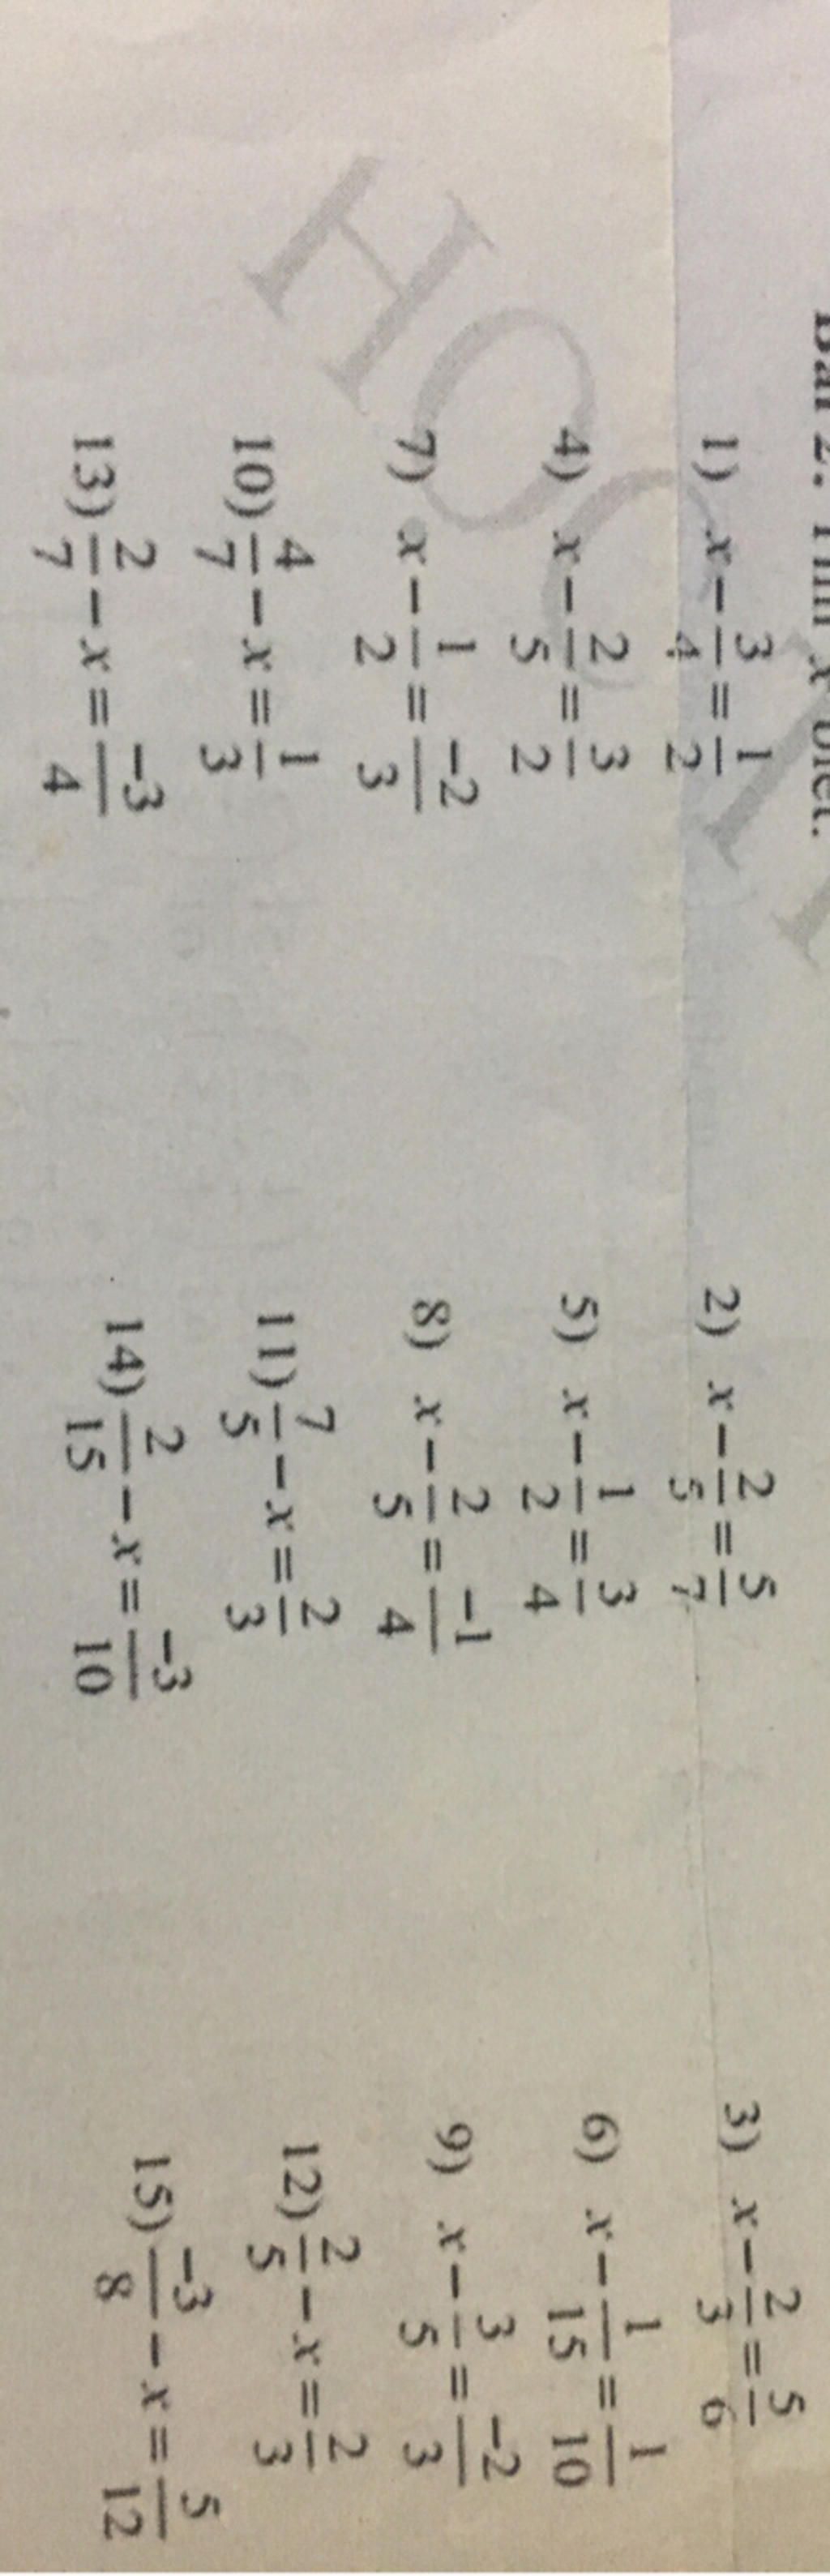 x
1) x - 3/4 = 1/2 2) x - 2/5 = 5/7 3) x - 2/3 = 5/6
4) x - 2/5 = 3/2 5) x - 1/2 = 3/4 6) x - 1/15 = 1/10
7) x - 1/2 = -2/3 8) x - 2/5 = -1/4 9) x - 3/5 = -2/3
10) 4/7 - x = 1/3 11) 7/5 - x = 2/3 12) 2/5 - x = 2/3
13) 2/7 - x = -3/4 14) 2/15 - x = -3/10 15) -3/8 - x = 5/12